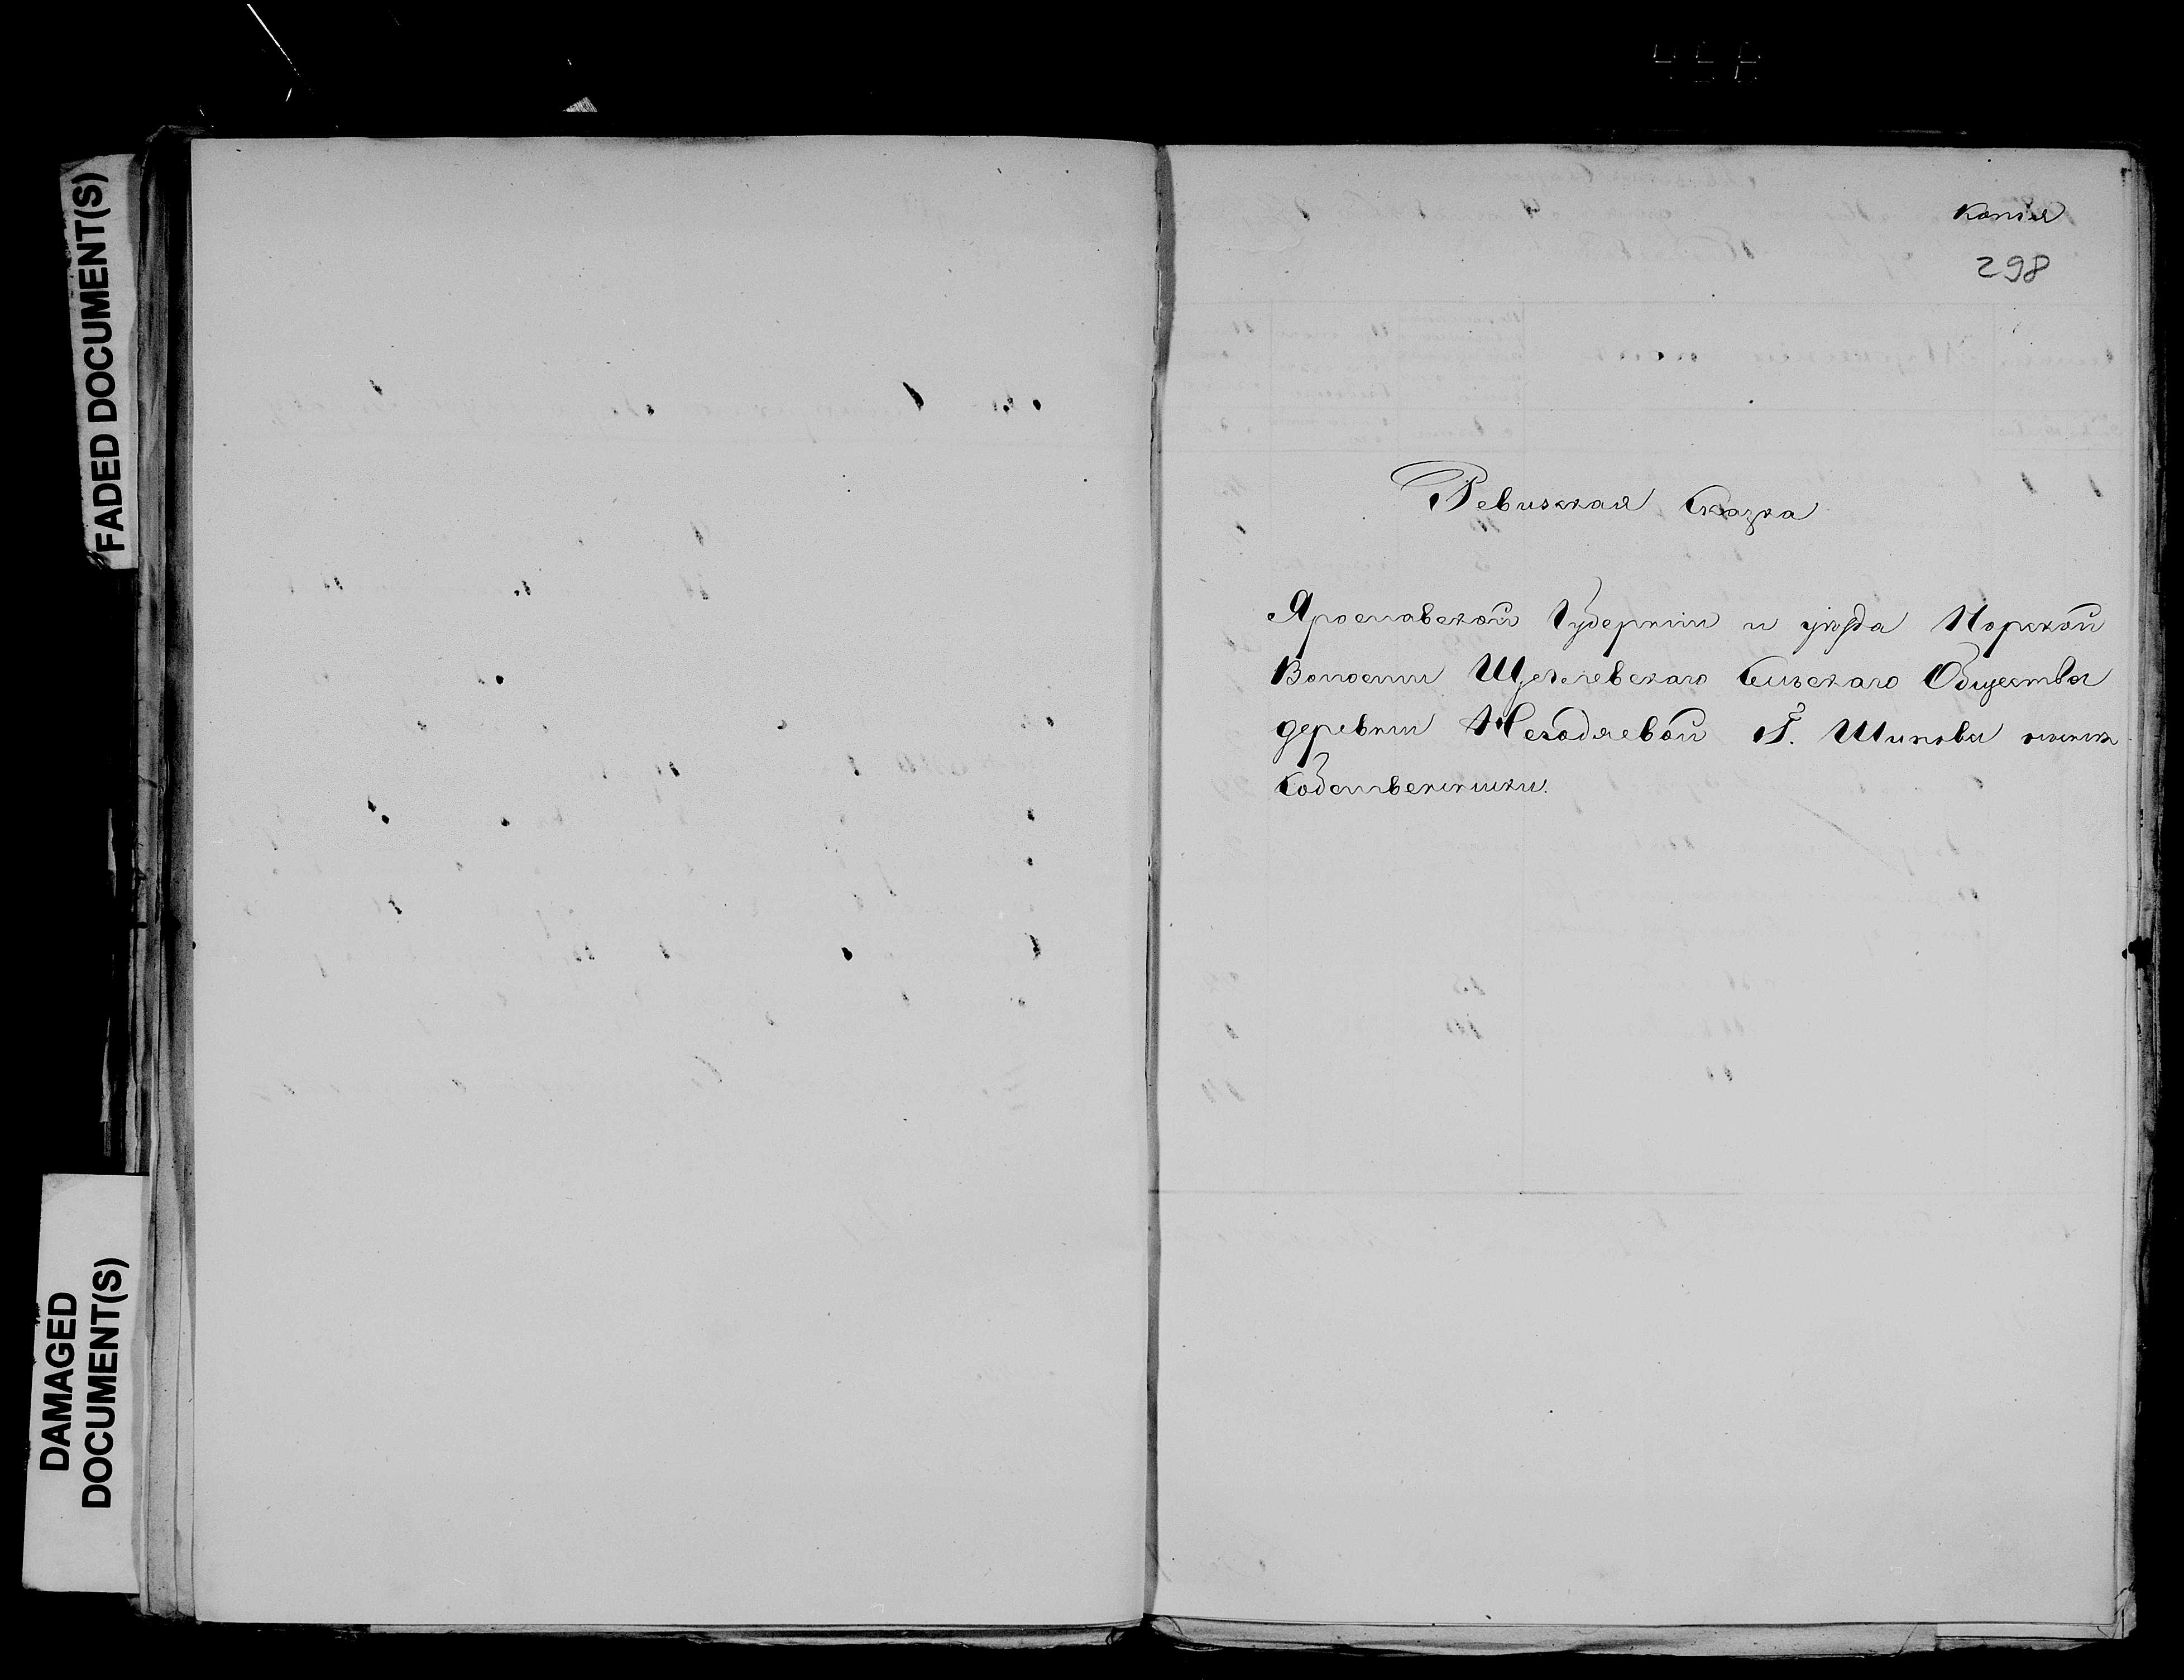 FADED DOCUMENT(S)
DAMAGED
DOCUMENT(S)
копія
298
Ревизская Сказка
Ярославской Губерніи и уѣзда Норской
Волости Щеглевскаго Сельскаго Общества
деревни Негодяевой Г. Шипова
Собственники.